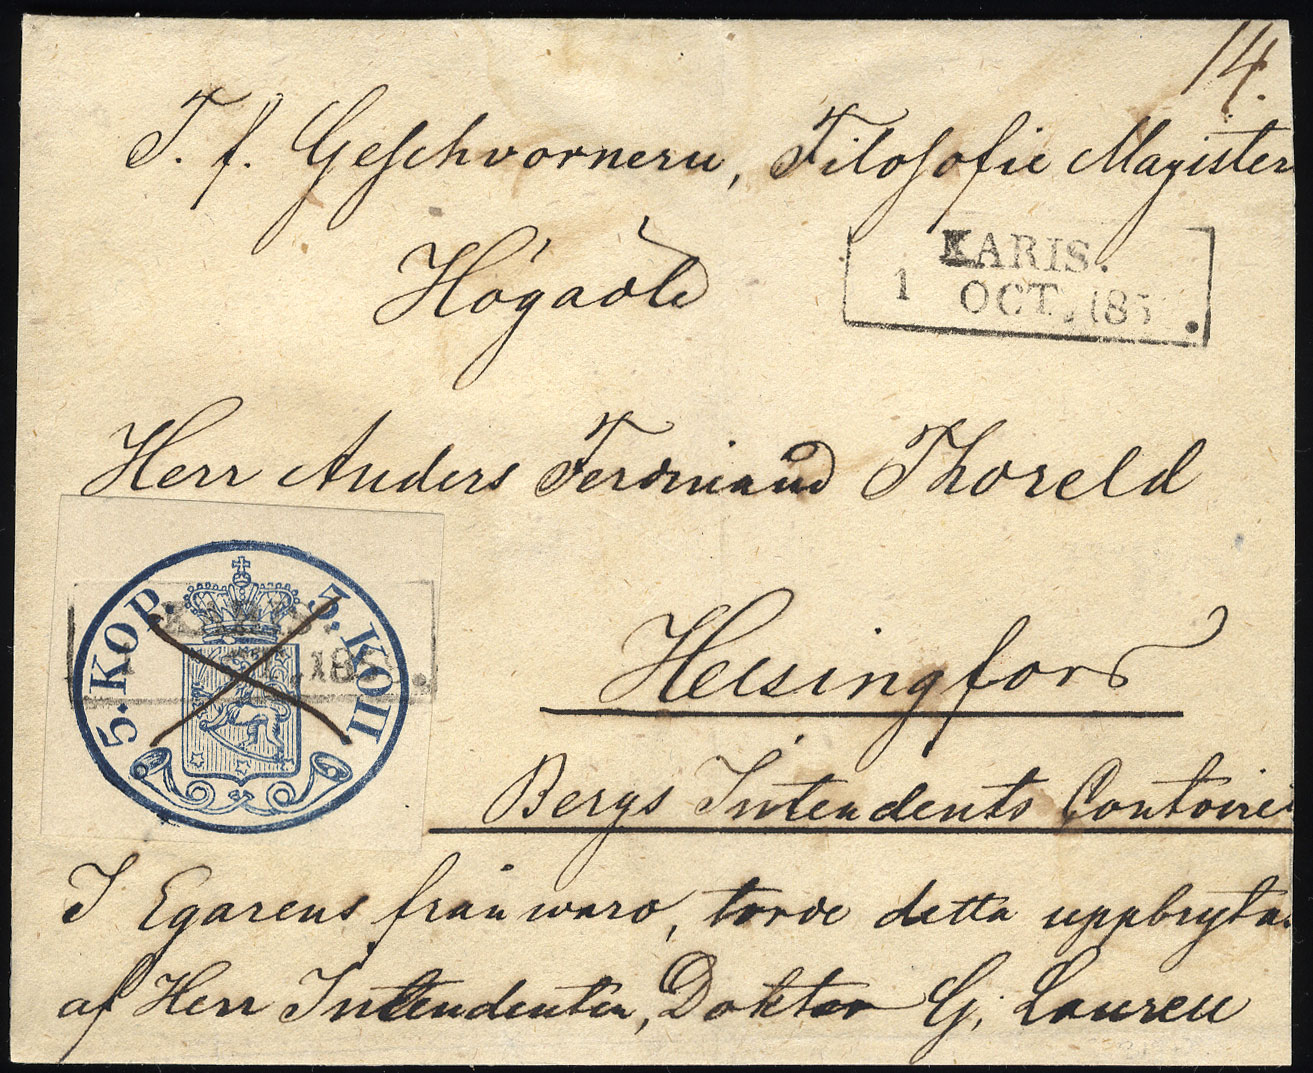 14.
T. f. Geschvornern, Filosofie Magister
KARIS.
1 OCT. 185
Högädle
Herr Anders Ferdinand Thoreld
5. KOP. 5. КОП.
KARIS.
1 OCT. 18
Helsingfors
Bergs Intendents Contoiret
I Egarens frånwaro, torde detta uppbrytas
af Herr Intendenten, Doktor G. Laurell